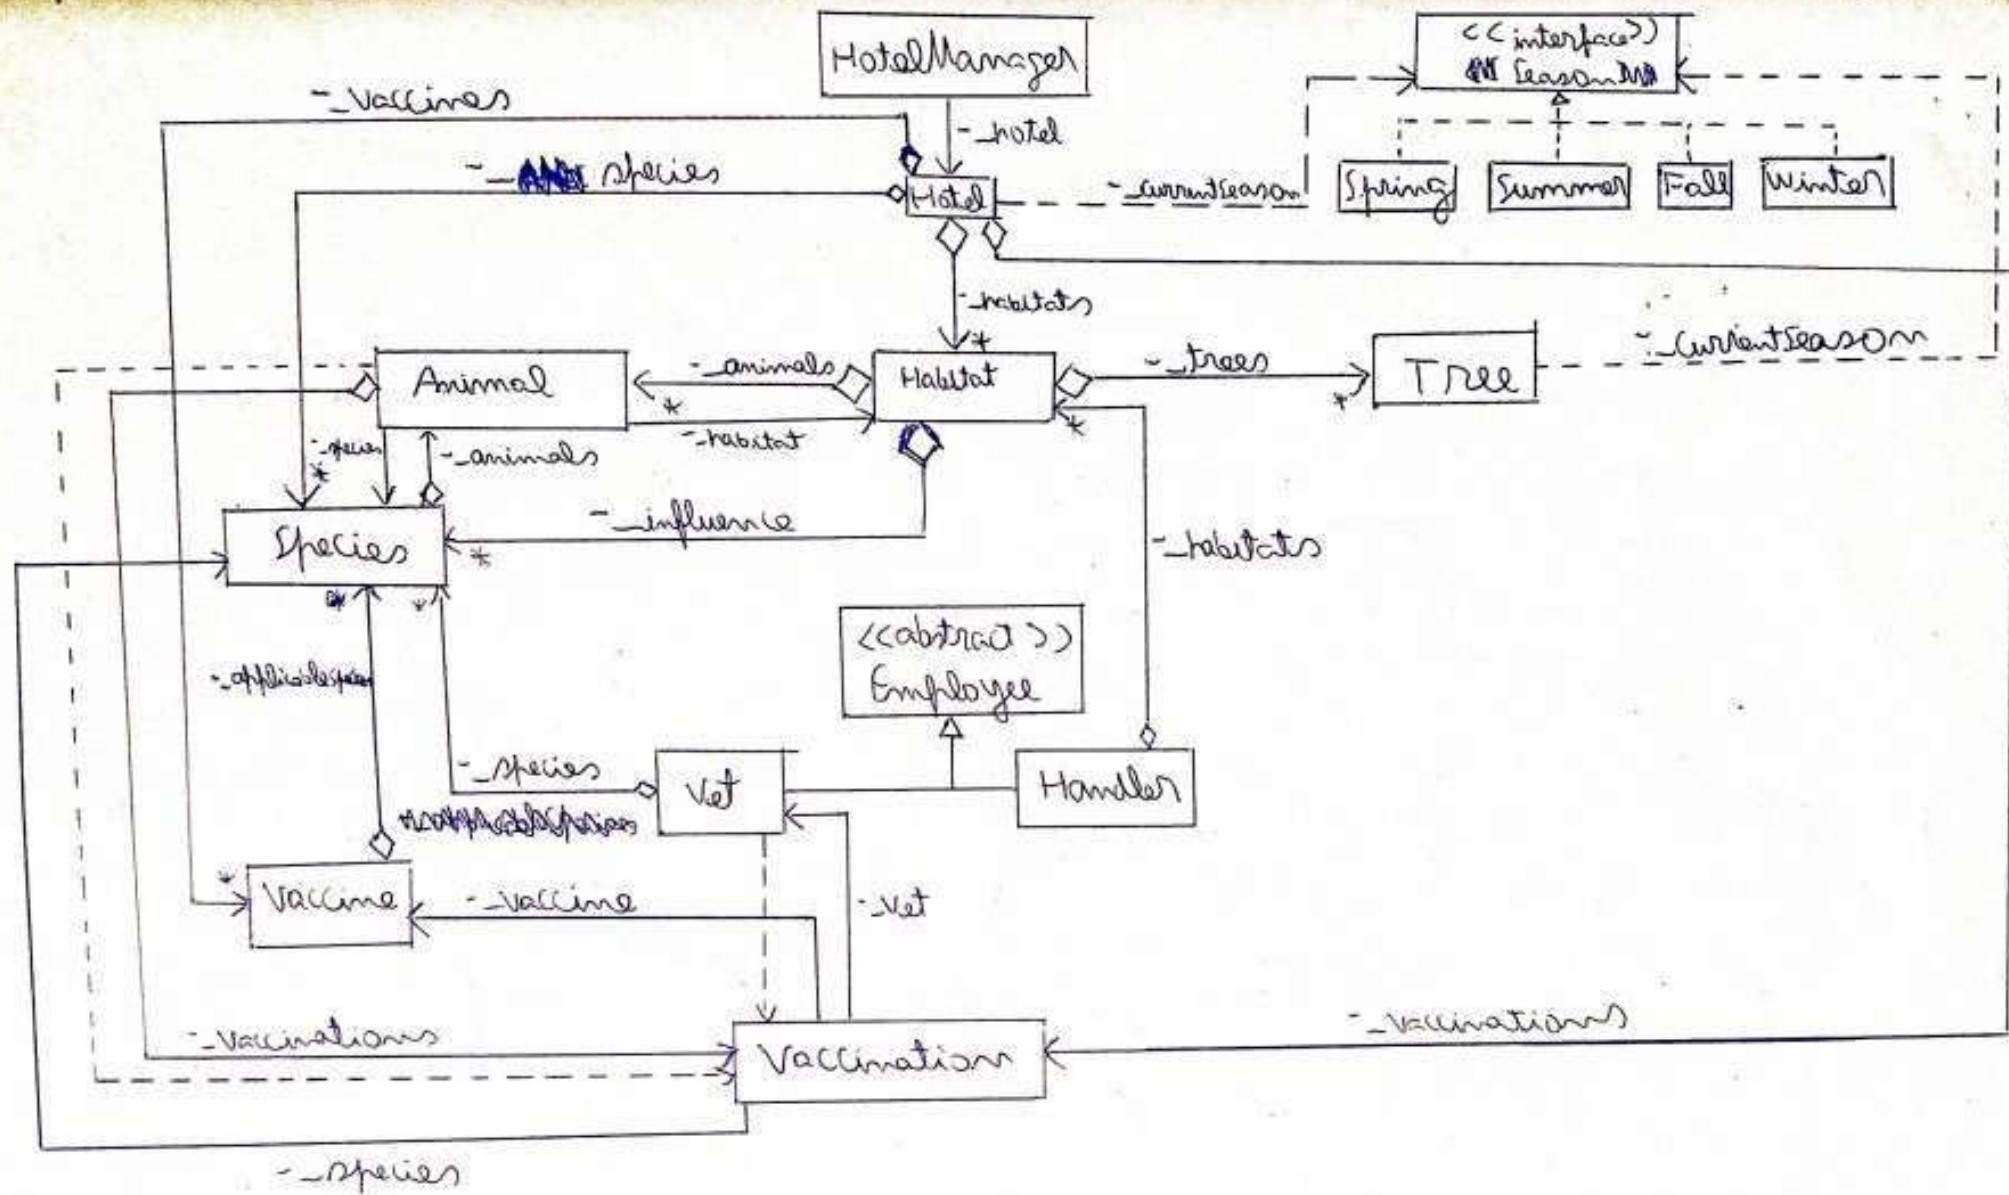 HotelManager
<<interface>>
Season
-_vaccines
-_hotel
-_species
Hotel
-_currentSeason
Spring
Summer
Fall
Winter
-_habitats
*
Animal
-_animals
*
Habitat
-_trees
*
Tree
-_currentSeason
-_habitat
*
-_species
*
-_animals
-_influence
*
Species
-_habitats
*
*
<<abstract>>
Employee
-_species
Vet
Handler
*
Vaccine
-_vaccine
-_vet
-_vaccinations
Vaccination
-_vaccinations
-_species